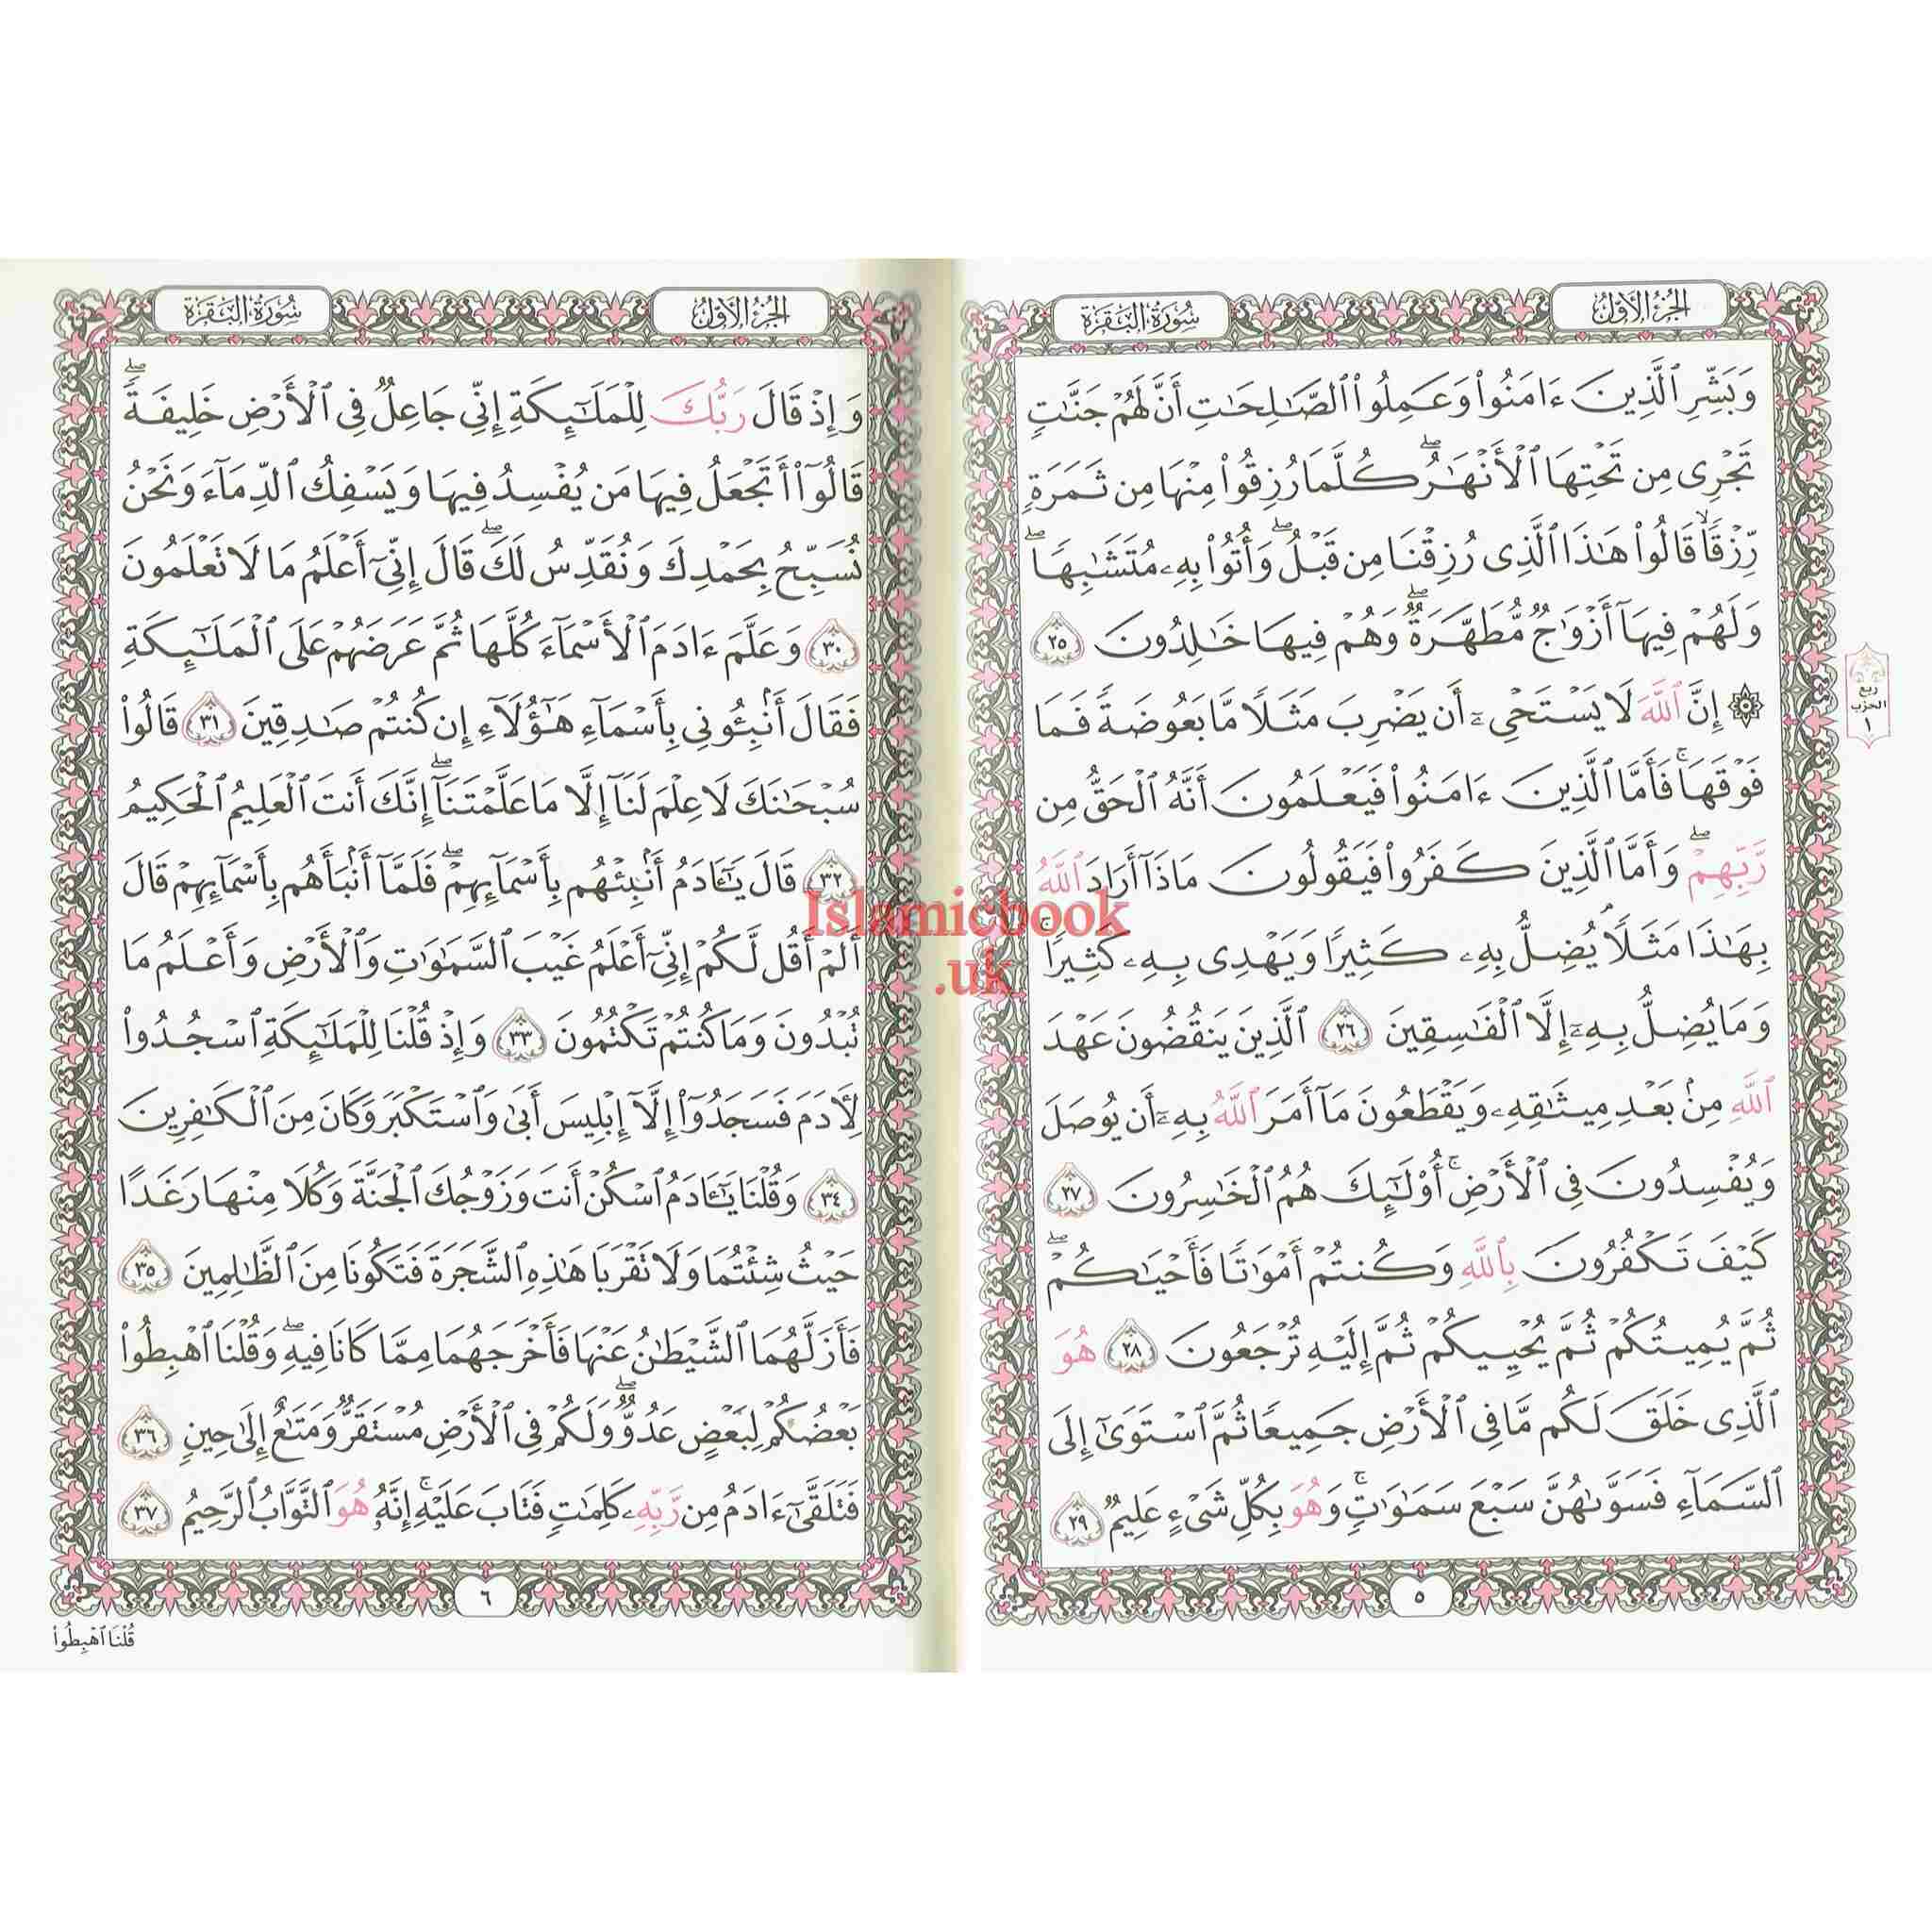 الجزء الأول
سورة البقرة
وَبَشِّرِ ٱلَّذِينَ ءَامَنُوا۟ وَعَمِلُوا۟ ٱلصَّـٰلِحَـٰتِ أَنَّ لَهُمْ جَنَّـٰتٍ
تَجْرِى مِن تَحْتِهَا ٱلْأَنْهَـٰرُ ۖ كُلَّمَا رُزِقُوا۟ مِنْهَا مِن ثَمَرَةٍ
رِّزْقًا ۙ قَالُوا۟ هَـٰذَا ٱلَّذِى رُزِقْنَا مِن قَبْلُ ۖ وَأُتُوا۟ بِهِۦ مُتَشَـٰبِهًا ۖ
وَلَهُمْ فِيهَآ أَزْوَٰجٌ مُّطَهَّرَةٌ ۖ وَهُمْ فِيهَا خَـٰلِدُونَ ٢٥
۞ إِنَّ ٱللَّهَ لَا يَسْتَحْىِۦٓ أَن يَضْرِبَ مَثَلًا مَّا بَعُوضَةً فَمَا
فَوْقَهَا ۚ فَأَمَّا ٱلَّذِينَ ءَامَنُوا۟ فَيَعْلَمُونَ أَنَّهُ ٱلْحَقُّ مِن
رَّبِّهِمْ ۖ وَأَمَّا ٱلَّذِينَ كَفَرُوا۟ فَيَقُولُونَ مَاذَآ أَرَادَ ٱللَّهُ
بِهَـٰذَا مَثَلًا ۘ يُضِلُّ بِهِۦ كَثِيرًا وَيَهْدِى بِهِۦ كَثِيرًا ۚ
وَمَا يُضِلُّ بِهِۦٓ إِلَّا ٱلْفَـٰسِقِينَ ٢٦ ٱلَّذِينَ يَنقُضُونَ عَهْدَ
ٱللَّهِ مِنۢ بَعْدِ مِيثَـٰقِهِۦ وَيَقْطَعُونَ مَآ أَمَرَ ٱللَّهُ بِهِۦٓ أَن يُوصَلَ
وَيُفْسِدُونَ فِى ٱلْأَرْضِ ۚ أُو۟لَـٰٓئِكَ هُمُ ٱلْخَـٰسِرُونَ ٢٧
كَيْفَ تَكْفُرُونَ بِٱللَّهِ وَكُنتُمْ أَمْوَٰتًا فَأَحْيَـٰكُمْ ۖ
ثُمَّ يُمِيتُكُمْ ثُمَّ يُحْيِيكُمْ ثُمَّ إِلَيْهِ تُرْجَعُونَ ٢٨ هُوَ
ٱلَّذِى خَلَقَ لَكُم مَّا فِى ٱلْأَرْضِ جَمِيعًا ثُمَّ ٱسْتَوَىٰٓ إِلَى
ٱلسَّمَآءِ فَسَوَّىٰهُنَّ سَبْعَ سَمَـٰوَٰتٍ ۚ وَهُوَ بِكُلِّ شَىْءٍ عَلِيمٌ ٢٩
٥
ربع
الحزب
١
الجزء الأول
سورة البقرة
وَإِذْ قَالَ رَبُّكَ لِلْمَلَـٰٓئِكَةِ إِنِّى جَاعِلٌ فِى ٱلْأَرْضِ خَلِيفَةً ۖ
قَالُوٓا۟ أَتَجْعَلُ فِيهَا مَن يُفْسِدُ فِيهَا وَيَسْفِكُ ٱلدِّمَآءَ وَنَحْنُ
نُسَبِّحُ بِحَمْدِكَ وَنُقَدِّسُ لَكَ ۖ قَالَ إِنِّىٓ أَعْلَمُ مَا لَا تَعْلَمُونَ
٣٠ وَعَلَّمَ ءَادَمَ ٱلْأَسْمَآءَ كُلَّهَا ثُمَّ عَرَضَهُمْ عَلَى ٱلْمَلَـٰٓئِكَةِ
فَقَالَ أَنۢبِـُٔونِى بِأَسْمَآءِ هَـٰٓؤُلَآءِ إِن كُنتُمْ صَـٰدِقِينَ ٣١ قَالُوا۟
سُبْحَـٰنَكَ لَا عِلْمَ لَنَآ إِلَّا مَا عَلَّمْتَنَآ ۖ إِنَّكَ أَنتَ ٱلْعَلِيمُ ٱلْحَكِيمُ
٣٢ قَالَ يَـٰٓـَٔادَمُ أَنۢبِئْهُم بِأَسْمَآئِهِمْ ۖ فَلَمَّآ أَنۢبَأَهُم بِأَسْمَآئِهِمْ قَالَ
أَلَمْ أَقُل لَّكُمْ إِنِّىٓ أَعْلَمُ غَيْبَ ٱلسَّمَـٰوَٰتِ وَٱلْأَرْضِ وَأَعْلَمُ مَا
تُبْدُونَ وَمَا كُنتُمْ تَكْتُمُونَ ٣٣ وَإِذْ قُلْنَا لِلْمَلَـٰٓئِكَةِ ٱسْجُدُوا۟
لِـَٔادَمَ فَسَجَدُوٓا۟ إِلَّآ إِبْلِيسَ أَبَىٰ وَٱسْتَكْبَرَ وَكَانَ مِنَ ٱلْكَـٰفِرِينَ
٣٤ وَقُلْنَا يَـٰٓـَٔادَمُ ٱسْكُنْ أَنتَ وَزَوْجُكَ ٱلْجَنَّةَ وَكُلَا مِنْهَا رَغَدًا
حَيْثُ شِئْتُمَا وَلَا تَقْرَبَا هَـٰذِهِ ٱلشَّجَرَةَ فَتَكُونَا مِنَ ٱلظَّـٰلِمِينَ ٣٥
فَأَزَلَّهُمَا ٱلشَّيْطَـٰنُ عَنْهَا فَأَخْرَجَهُمَا مِمَّا كَانَا فِيهِ ۖ وَقُلْنَا ٱهْبِطُوا۟
بَعْضُكُمْ لِبَعْضٍ عَدُوٌّ ۖ وَلَكُمْ فِى ٱلْأَرْضِ مُسْتَقَرٌّ وَمَتَـٰعٌ إِلَىٰ حِينٍ ٣٦
فَتَلَقَّىٰٓ ءَادَمُ مِن رَّبِّهِۦ كَلِمَـٰتٍ فَتَابَ عَلَيْهِ ۚ إِنَّهُۥ هُوَ ٱلتَّوَّابُ ٱلرَّحِيمُ ٣٧
٦
قُلْنَا ٱهْبِطُوا۟
Islamicbook
.uk